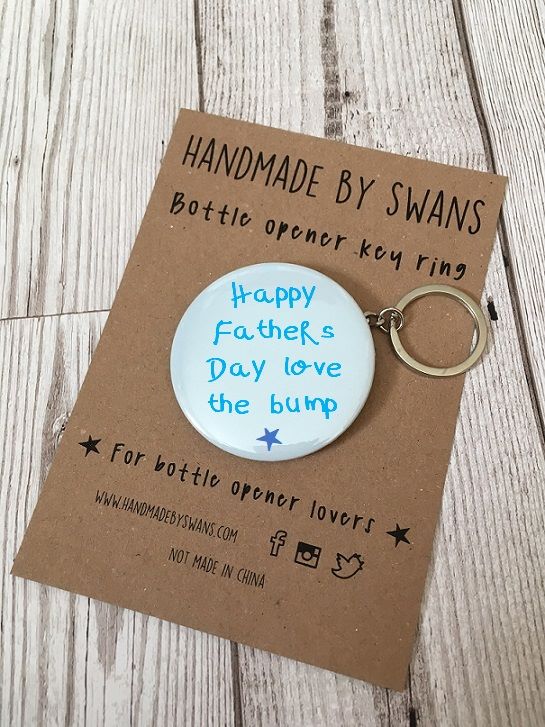 HANDMADE BY SWANS
Bottle opener key ring
Happy
FatheRs
Day love
the bump
For bottle opener lovers
WWW.HANDMADEBYSWANS.COM
NOT MADE IN CHINA